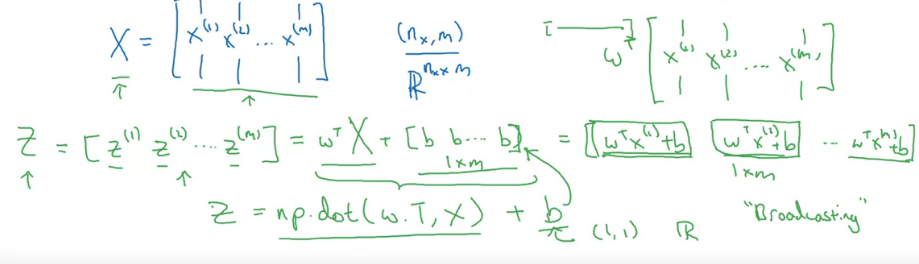 X = [x^(1) x^(2) ... x^(m)] (n_x, m) w^T [x^(1) x^(2) ... x^(m)]
ℝ^(n_x × m)
Z = [z^(1) z^(2) ... z^(m)] = w^T X + [b b ... b] = [w^T x^(1)+b w^T x^(2)+b ... w^T x^(m)+b]
1×m 1×m
Z = np.dot(w.T, X) + b (1,1) ℝ "Broadcasting"